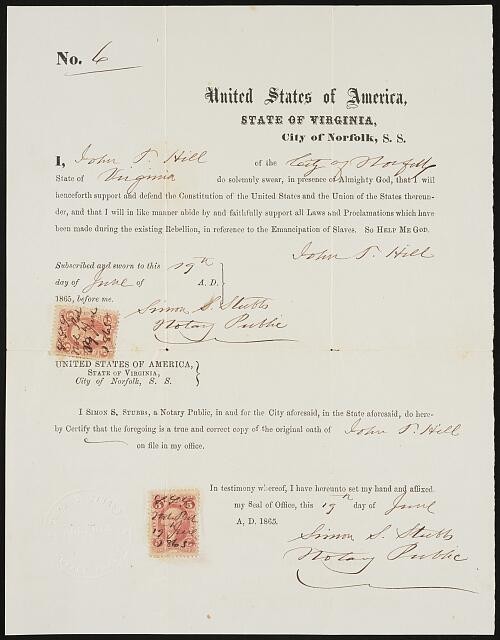 No. 6
United States of America,
STATE OF VIRGINIA,
City of Norfolk, S. S.
I, John T. Hill of the City of Norfolk
State of Virginia do solemnly swear, in presence of Almighty God, that I will
henceforth support and defend the Constitution of the United States and the Union of the States thereun-
der, and that I will in like manner abide by and faithfully support all Laws and Proclamations which have
been made during the existing Rebellion, in reference to the Emancipation of Slaves. So HELP ME GOD.
John T. Hill
Subscribed and sworn to this 19th
day of June of A. D.
1865, before me.
Simon S. Stubbs
Notary Public
UNITED STATES OF AMERICA,
STATE OF VIRGINIA,
City of Norfolk, S. S.
I SIMON S. STUBBS, a Notary Public, in and for the City aforesaid, in the State aforesaid, do here-
by Certify that the foregoing is a true and correct copy of the original oath of John T. Hill
on file in my office.
In testimony whereof, I have hereunto set my hand and affixed
my Seal of Office, this 19th day of June
A, D. 1865.
Simon S. Stubbs
Notary Public
5 5
19 June
1865